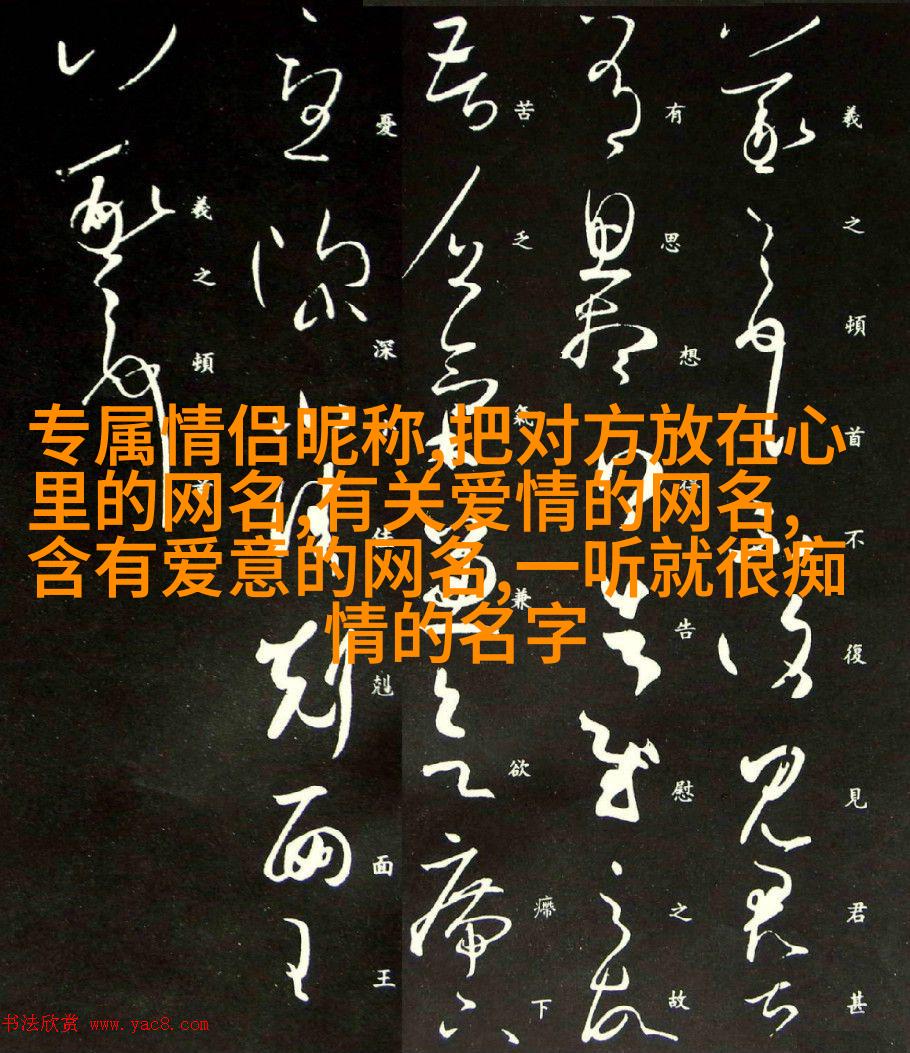 羲之頓首不復見君甚
有思想得告慰之故
苦乏氣兼欲㿃下
憂深佳剋面王
羲之頓首
专属情侣昵称,把对方放在心
里的网名,有关爱情的网名,
含有爱意的网名,一听就很痴
情的名字
书法欣赏 www.yac8.com